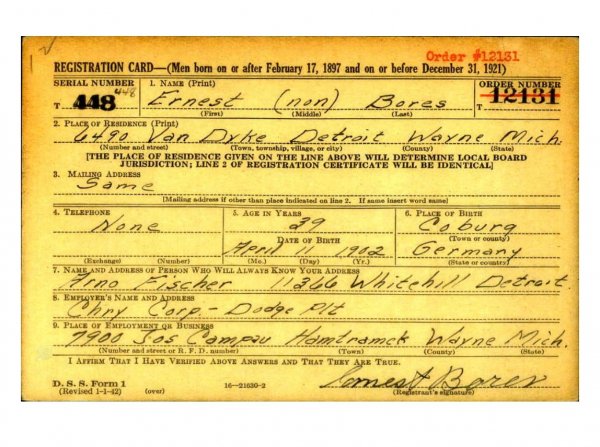 Order #12131
REGISTRATION CARD—(Men born on or after February 17, 1897 and on or before December 31, 1921)
SERIAL NUMBER 1. NAME (Print) ORDER NUMBER
T 448 448 Ernest (non) Bores T 12131
(First) (Middle) (Last)
2. PLACE OF RESIDENCE (Print)
6490 Van Dyke Detroit Wayne Mich.
(Number and street) (Town, township, village, or city) (County) (State)
[THE PLACE OF RESIDENCE GIVEN ON THE LINE ABOVE WILL DETERMINE LOCAL BOARD
JURISDICTION; LINE 2 OF REGISTRATION CERTIFICATE WILL BE IDENTICAL]
3. MAILING ADDRESS
Same
[Mailing address if other than place indicated on line 2. If same insert word same]
4. TELEPHONE 5. AGE IN YEARS 6. PLACE OF BIRTH
None 39 Coburg
DATE OF BIRTH (Town or county)
April 11 1902 Germany
(Exchange) (Number) (Mo.) (Day) (Yr.) (State or country)
7. NAME AND ADDRESS OF PERSON WHO WILL ALWAYS KNOW YOUR ADDRESS
Arno Fischer 11366 Whitehill Detroit.
8. EMPLOYER'S NAME AND ADDRESS
Chry Corp - Dodge Plt
9. PLACE OF EMPLOYMENT OR BUSINESS
7900 Jos Campau Hamtramck Wayne Mich.
(Number and street or R. F. D. number) (Town) (County) (State)
I AFFIRM THAT I HAVE VERIFIED ABOVE ANSWERS AND THAT THEY ARE TRUE.
D. S. S. Form 1
(Revised 1-1-42) (over) 16—21630-2 Ernest Bores
(Registrant's signature)